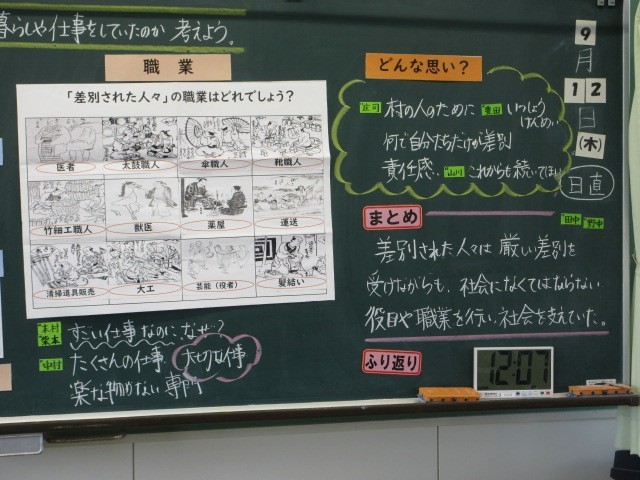 暮らしや仕事をしていたのか 考えよう。
職業
「差別された人々」の職業はどれでしょう？
医者
太鼓職人
傘職人
靴職人
竹細工職人
獣医
薬屋
運送
清掃道具販売
大工
芸能（役者）
髪結い
木村
柴本
すごい仕事なのに、なぜ？
中村
たくさんの仕事、大切な仕事
楽な物がない 専門
どんな思い？
庄司 村の人のために 豊田 いっしょう
けんめい
何で自分たちだけが差別
責任感、山川 これからも続いてほしい
まとめ
差別された人々は 厳しい差別を
受けながらも、社会になくてはならない
役目や職業を行い、社会を支えていた。
ふり返り
9
月
12
日
(木)
日直
田中 野中
12:07